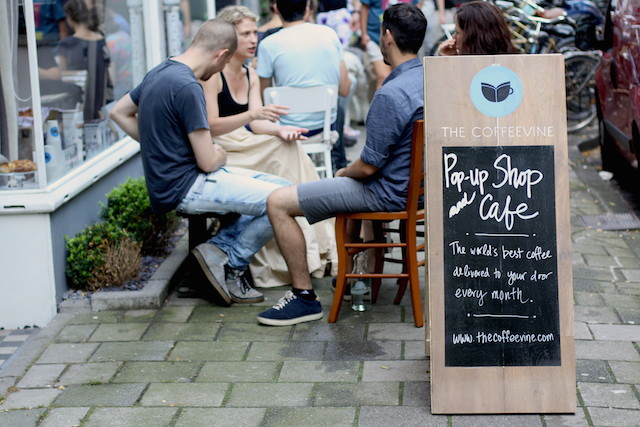 THE COFFEEVINE
Pop-up Shop
and Cafe
The world's best coffee
delivered to your door
every month.
www.thecoffeevine.com